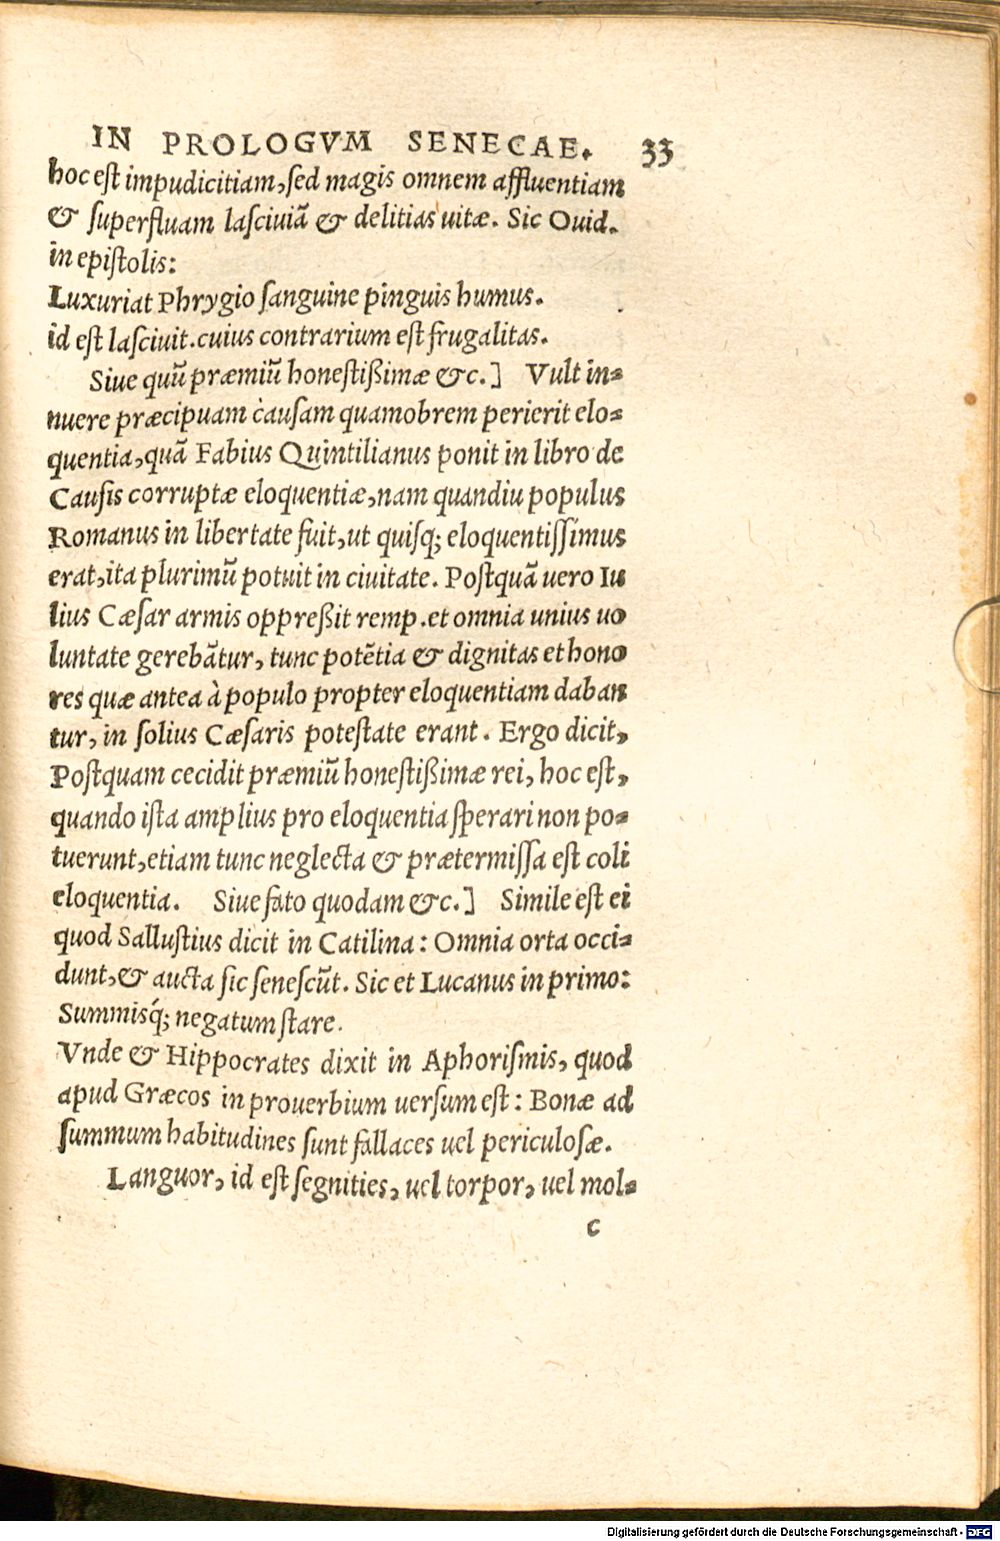 IN PROLOGVM SENECAE. 33
hoc est impudicitiam, ſed magis omnem affluentiam
& ſuperfluam laſciuiã & delitias uitæ. Sic Ouid.
in epiſtolis:
Luxuriat Phrygio ſanguine pinguis humus.
id est laſciuit. cuius contrarium eſt frugalitas.
Siue quũ præmiũ honeſtißimæ &c.] Vult in-
nuere præcipuam cauſam quamobrem perierit elo-
quentia, quã Fabius Quintilianus ponit in libro de
Cauſis corruptæ eloquentiæ, nam quandiu populus
Romanus in libertate fuit, ut quiſq; eloquentiſſimus
erat, ita plurimũ potuit in ciuitate. Poſtquã uero Iu
lius Cæſar armis oppreßit remp. et omnia unius uo
luntate gerebãtur, tunc potẽtia & dignitas et hono
res quæ antea à populo propter eloquentiam daban
tur, in ſolius Cæſaris poteſtate erant. Ergo dicit,
Poſtquam cecidit præmiũ honeſtißimæ rei, hoc eſt,
quando iſta amplius pro eloquentia ſperari non po-
tuerunt, etiam tunc neglecta & prætermiſſa eſt coli
eloquentia. Siue fato quodam &c.] Simile eſt ei
quod Salluſtius dicit in Catilina: Omnia orta occi-
dunt, & aucta sic ſeneſcũt. Sic et Lucanus in primo:
Summisq́; negatum ſtare.
Vnde & Hippocrates dixit in Aphoriſmis, quod
apud Græcos in prouerbium uerſum eſt: Bonæ ad
ſummum habitudines ſunt fallaces uel periculoſæ.
Languor, id eſt ſegnities, uel torpor, uel mol-
c
Digitalisierung gefördert durch die Deutsche Forschungsgemeinschaft - DFG